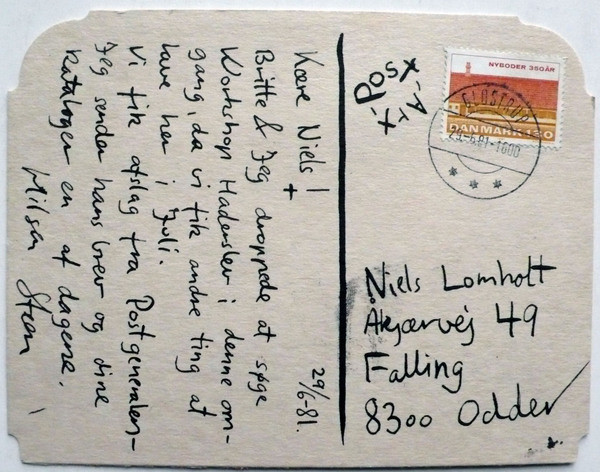 29/6-81.
Kære Niels!
+
Britte & Jeg droppede at søge
Workshop Haderslev i denne om-
gang, da vi fik andre ting at
lave her i Juli.
Vi fik afslag fra Postgeneralen-
Jeg sender hans brev og dine
kataloger en af dagene.
Hilsen Steen
Post-x-Art-x
NYBODER 350 ÅR
DANMARK 130
GLOSTRUP
29.-6.81-1600
Niels Lomholt
Åkjærvej 49
Falling
8300 Odder